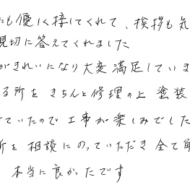 にも優しく接してくれて、挨拶も気
親切に答えてくれました
がきれいになり大変満足していま
る所をきちんと修理の上塗装
ていたので工事が楽しみでした
所を相談にのっていただき全て
本当に良かったです